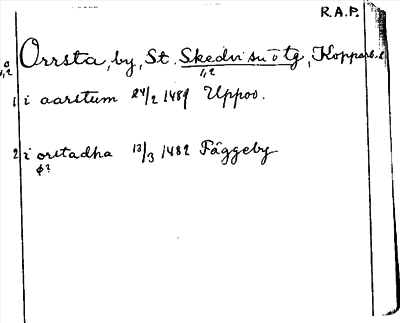 R.A.P.
Orrsta, by, St. Skedvi sn o tg, Kopparb. l
1,2
1 i aarstum 24/2 1489 Uppoo.
2 i orstadha 13/3 1482 Fäggeby